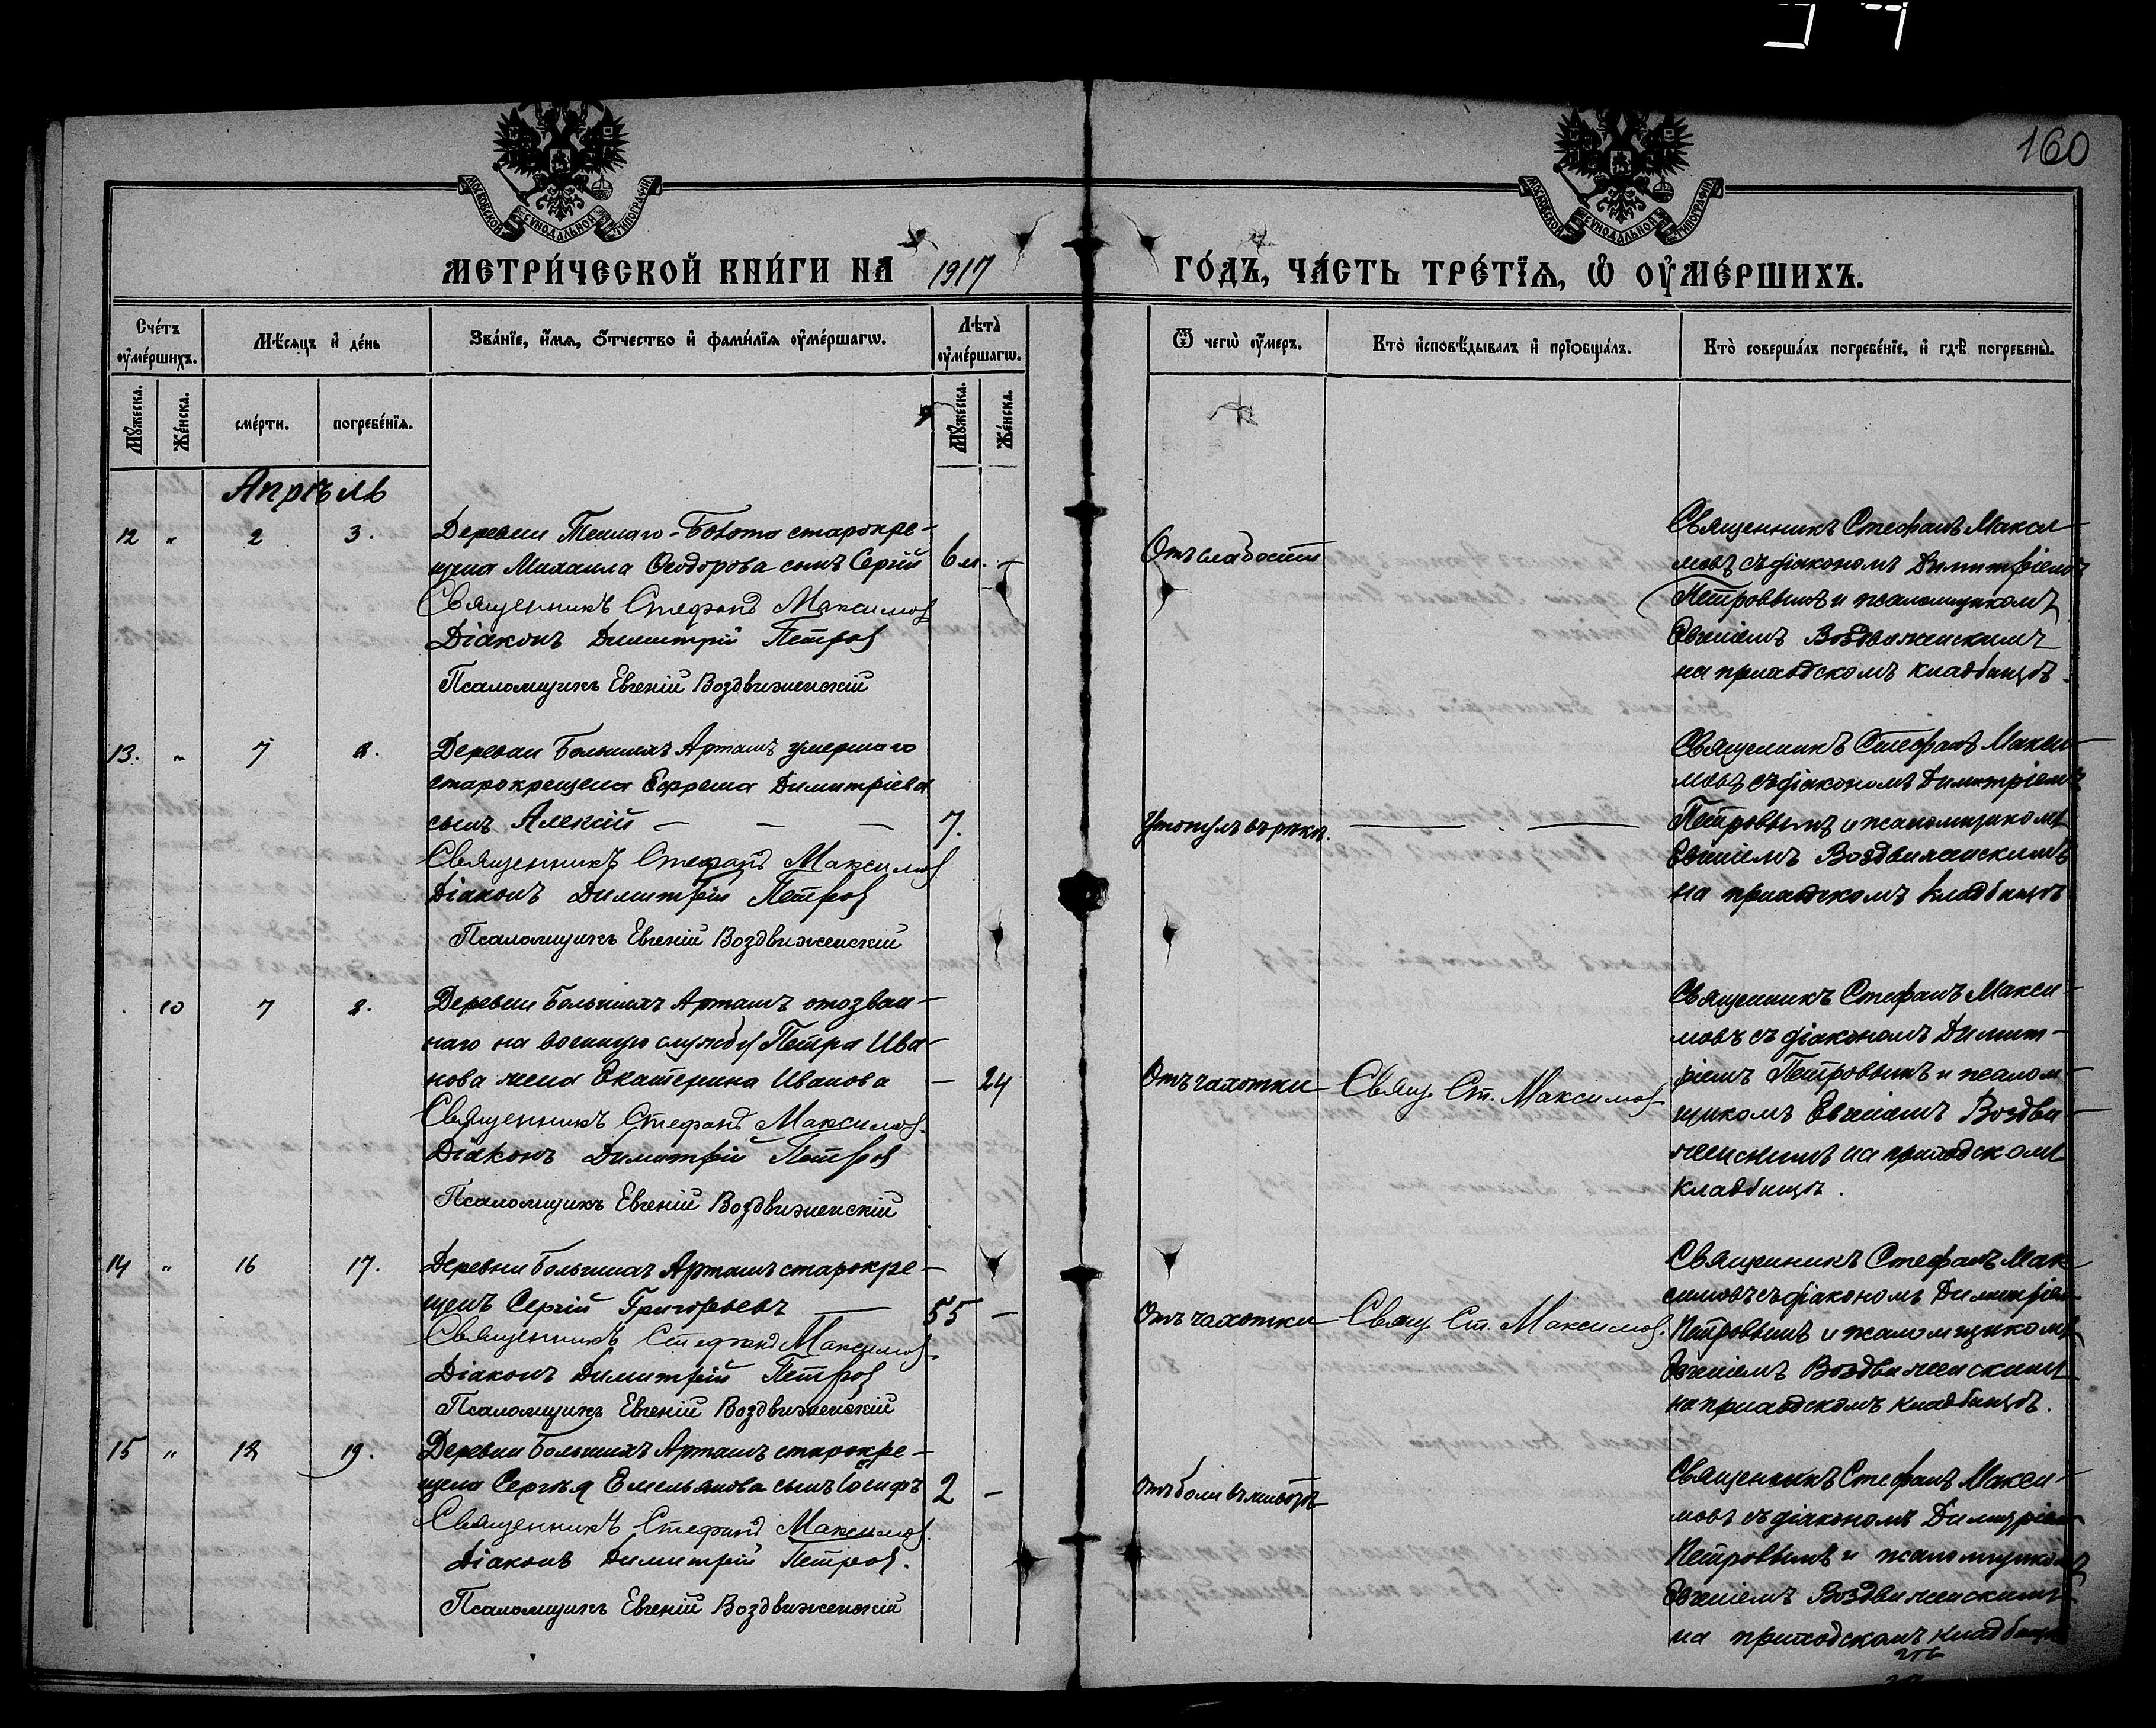 160
МОСКОВСКОЙ СѴНОДАЛЬНОЙ ТИПОГРАФІИ
МОСКОВСКОЙ СѴНОДАЛЬНОЙ ТИПОГРАФІИ
МЕТРИ́ЧЕСКОЙ КНИ́ГИ НА 1917 ГО́ДЪ, ЧА́СТЬ ТРЕ́ТІѦ, Ѡ҆ ОУ҆МЕ́РШИХЪ.
Сче́тъ оу҆ме́ршихъ.
Мѣ́сяцъ и҆ де́нь
Зва́нїе, и҆́мѧ, ѻ҆́тчество и҆ фами́лїѧ оу҆ме́ршагѡ.
Лѣ́та оу҆ме́ршагѡ.
Ѿ чегѡ̀ оу҆́меръ.
Кто̀ и҆сповѣ́дывалъ и҆ прїѡбща́лъ.
Кто̀ соверша́лъ погребе́нїе, и҆ гдѣ̀ погребены̀.
Мꙋ́жеска.
Же́нска.
сме́рти.
погребе́нїѧ.
Мꙋ́жеска.
Же́нска.
Апрѣль
12 " 2 3.
Деревни Болота старокре-
щена Михаила Ѳеодорова сынъ Сергій 6 м. -
Священникъ Стефанъ Максимов
Діаконъ Димитрій Петров
Псаломщикъ Евгеній Воздвиженскій
Отъ слабости
Священникъ Стефанъ Макси-
мовъ съ діакономъ Димитріемъ
Петровымъ и псаломщикомъ
Евгеніемъ Воздвиженскимъ
на приходскомъ кладбищѣ.
13. " 7 8.
Деревни Большихъ Арташъ умершаго
старокрещена Ефрема Димитріева
сынъ Алексій — — — 7.
Священникъ Стефанъ Максимов
Діаконъ Димитрій Петров
Псаломщикъ Евгеній Воздвиженскій
Утонулъ въ рѣкѣ. — . —
Священникъ Стефанъ Макси-
мовъ съ діакономъ Димитріемъ
Петровымъ и псаломщикомъ
Евгеніемъ Воздвиженскимъ
на приходскомъ кладбищѣ
. 10 7 8.
Деревни Большихъ Арташъ отозван-
наго на военную службу Петра Ива-
нова жена Екатерина Иванова — 24
Священникъ Стефанъ Максимов.
Діаконъ Димитрій Петров
Псаломщикъ Евгеній Воздвиженскій
Отъ чахотки
Свящ. Ст. Максимов
Священникъ Стефанъ Макси-
мовъ съ діакономъ Димит-
ріемъ Петровымъ и псалом-
щикомъ Евгеніемъ Воздви-
женскимъ на приходскомъ
кладбищѣ.
14 " 16 17.
Деревни Большихъ Арташъ старокре-
щенъ Сергій Григорьевъ 55 —
Священникъ Стефанъ Максимов.
Діаконъ Димитрій Петров
Псаломщикъ Евгеній Воздвиженскій
Отъ чахотки
Свящ. Ст. Максимов.
Священникъ Стефанъ Мак-
симовъ съ діакономъ Димитріем
Петровымъ и псаломщикомъ
Евгеніемъ Воздвиженскимъ
на приходскомъ кладбищѣ.
15 " 18 19.
Деревни Большихъ Арташъ старокре-
щена Сергѣя Емельянова сынъ Іосифъ 2 -
Священникъ Стефанъ Максимов.
Діаконъ Димитрій Петров.
Псаломщикъ Евгеній Воздвиженскій
отъ боли въ животѣ
Священникъ Стефанъ Макси-
мовъ съ діакономъ Димитріем
Петровымъ и псаломщикомъ
Евгеніемъ Воздвиженскимъ
на приходскомъ кладбищѣ